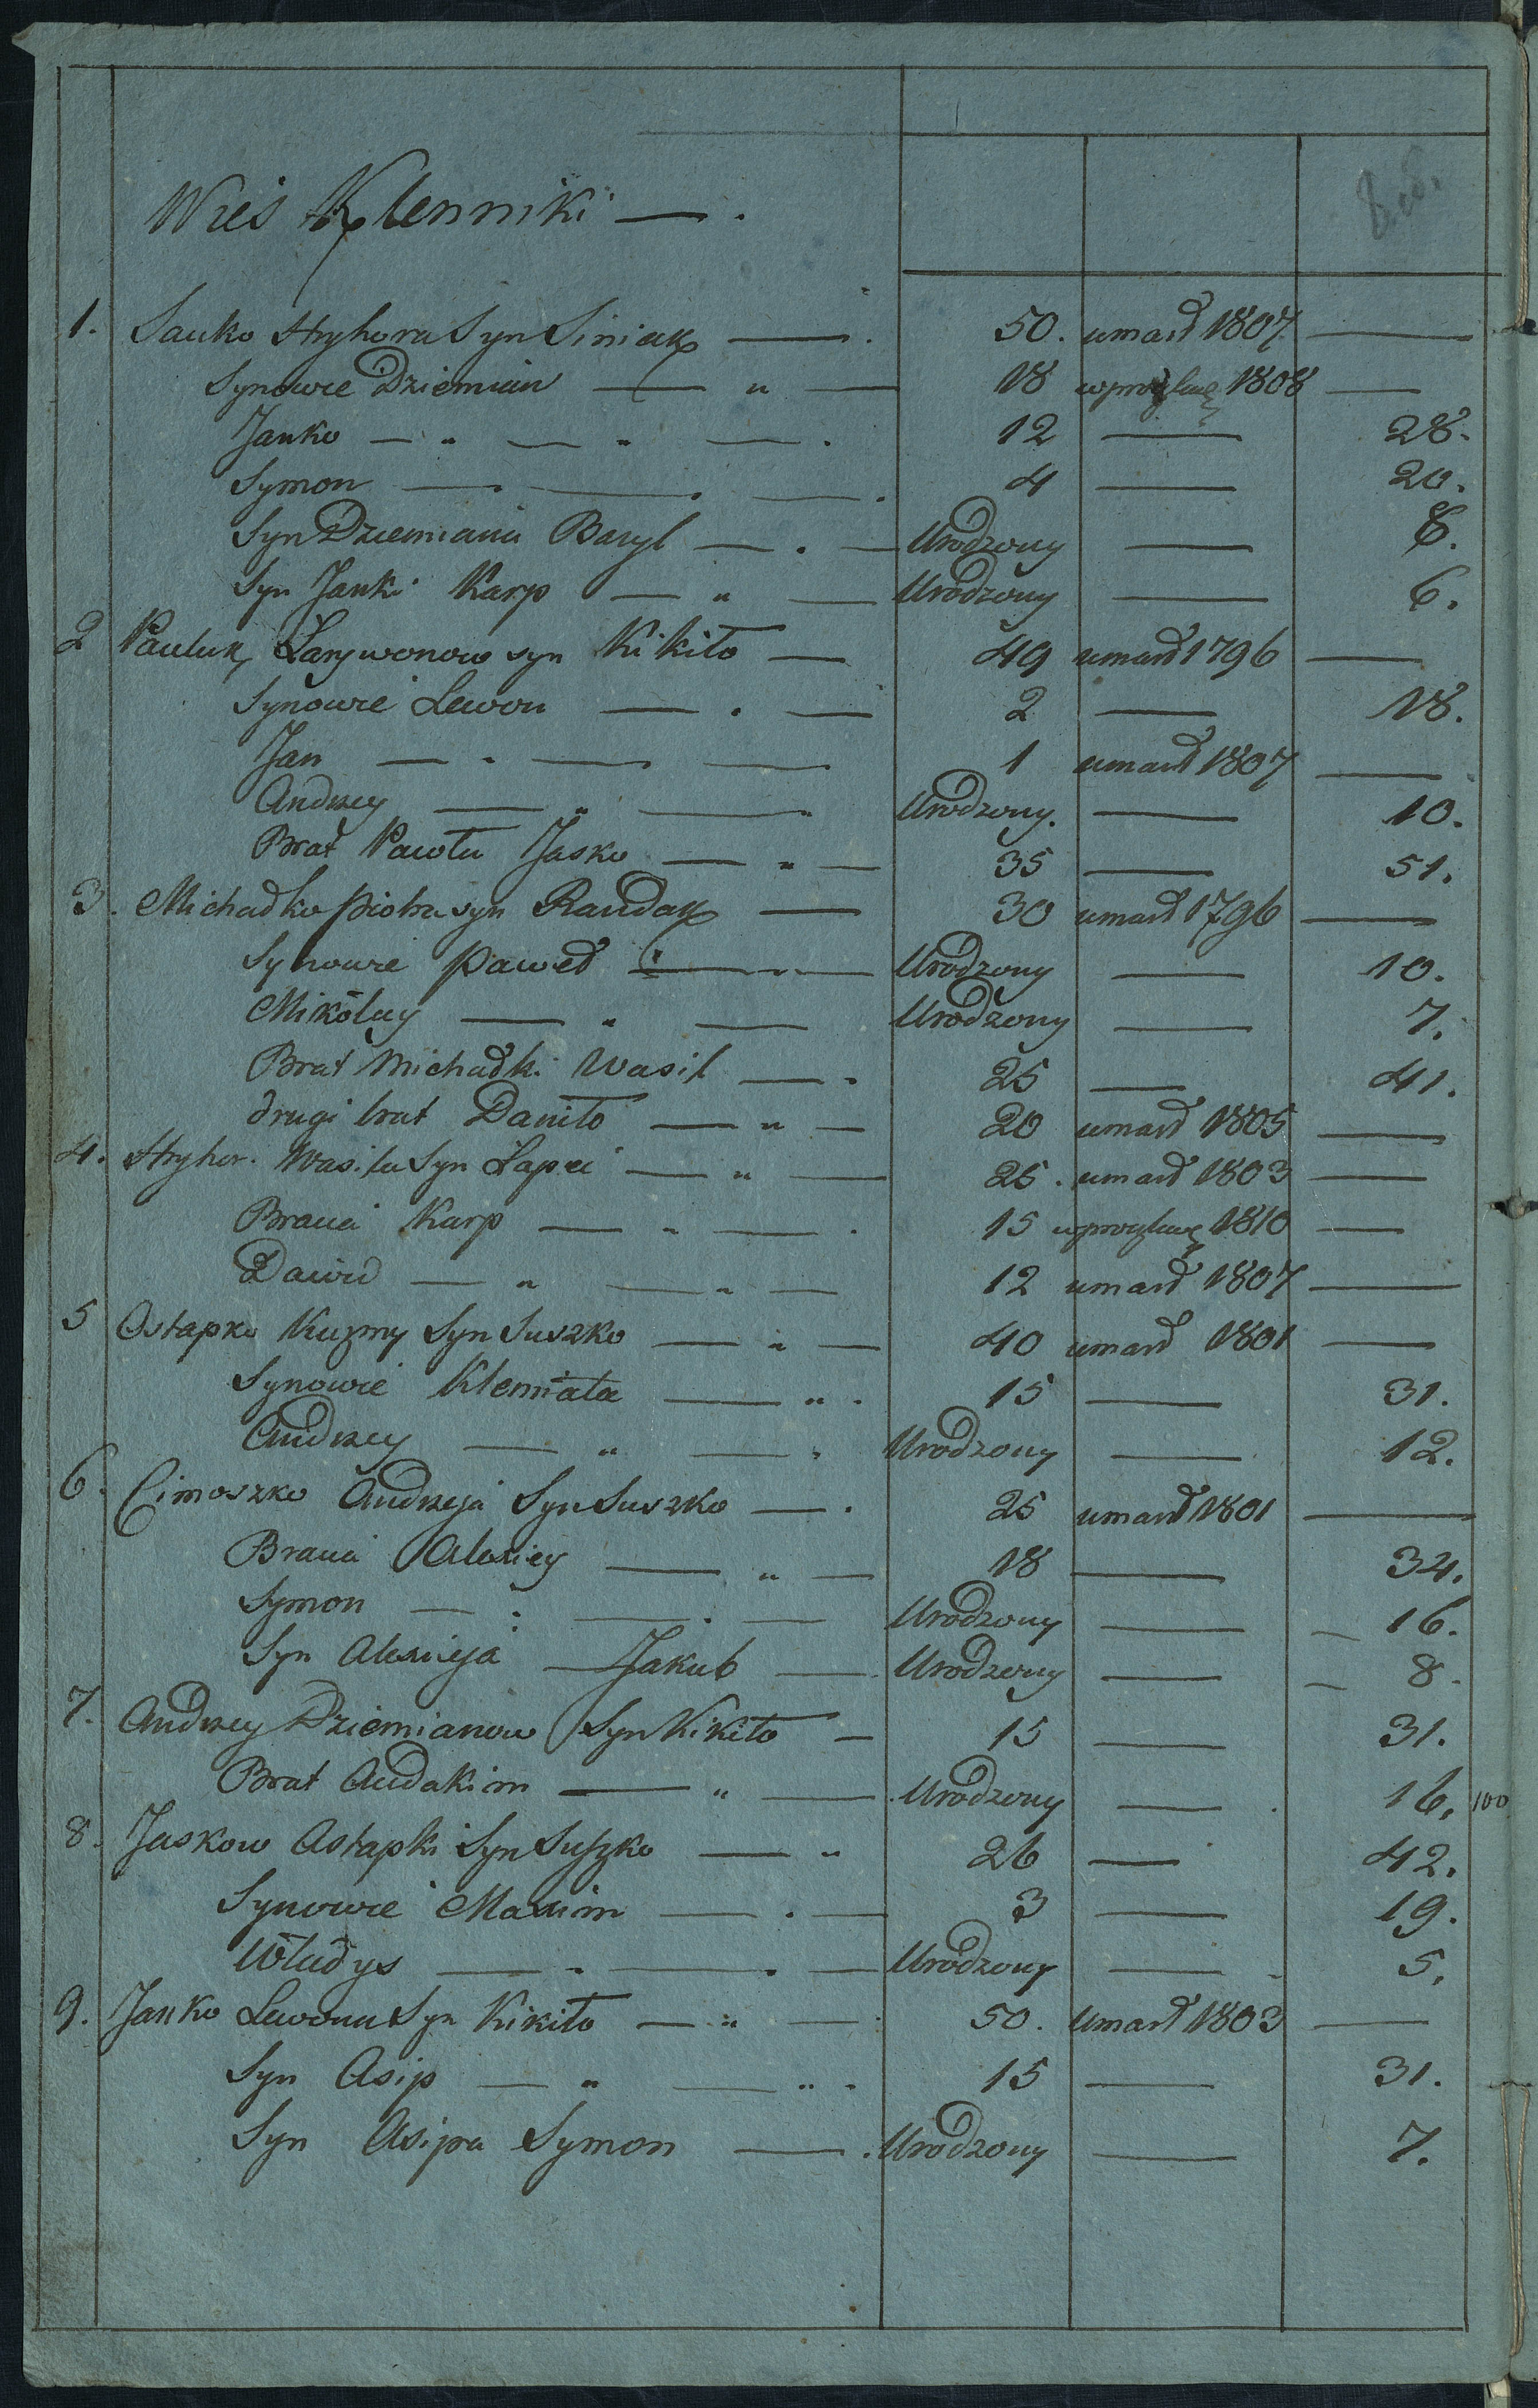 Wieś Klenniki — .
1. Sauko Hryhora Syn Siniak — . 50. umarł 1807 —
Synowie Dziemian — " — 18 w prozbue 1808 —
Janko — " — " — . 12 — 28.
Symon — . — . — . 4 — 20.
Syn Dziemiana Bazyl — . — Urodzony — 8.
Syn Janki Karp — " — Urodzony — 6.
2 Pauluk Larywonow syn Kikiło — 49 umarł 1796 —
Synowie Lewon — . — 2 — 18.
Jan — . — . — 1 umarł 1807 —
Andrzey — " — " Urodzony. — 10.
Brat Pawła Jasko — " — 35 — 51.
3. Michałko Piotra syn Raudak — 30 umarł 1796 —
Synowie Paweł — " — Urodzony — 10.
Mikołay — " — Urodzony — 7.
Brat Michałki Wasil — . 25 — 41.
drugi brat Daniło — " — 20 umarł 1805 —
4. Hryhor. Wasila Syn Łapei — " — 25. umarł 1803 —
Bracia Karp — " — . 15 1810 —
Dawid — " — " — 12 umarł 1807 —
5 Ostapko Kuzmy Syn Suszko — " — 40 umarł 1801 —
Synowie Klemiata — " . 15 — 31.
Andrzey — " — " Urodzony — 12.
6. Cimoszko Andrzeja Syn Suszko — . 25 umarł 1801 —
Bracia Alexiey — " — 18 — 34.
Symon — . — . — Urodzony — 16.
Syn Alexieja — Jakub — . Urodzony — 8.
7. Andrzey Dziemianow Syn Kikiło — 15 — 31.
Brat Audakim — " — . Urodzony — . 16. 100
8. Jaskow Astapki Syn Suszko — " 26 — 42.
Synowie Maxim — . — 3 — 19.
Władys — " — . — Urodzony — 5.
9. Janko Lewona Syn Kikiło — " — . 50. Umarł 1803 —
Syn Asip — " — " . 15 — 31.
Syn Asipa Symon — . Urodzony — 7.